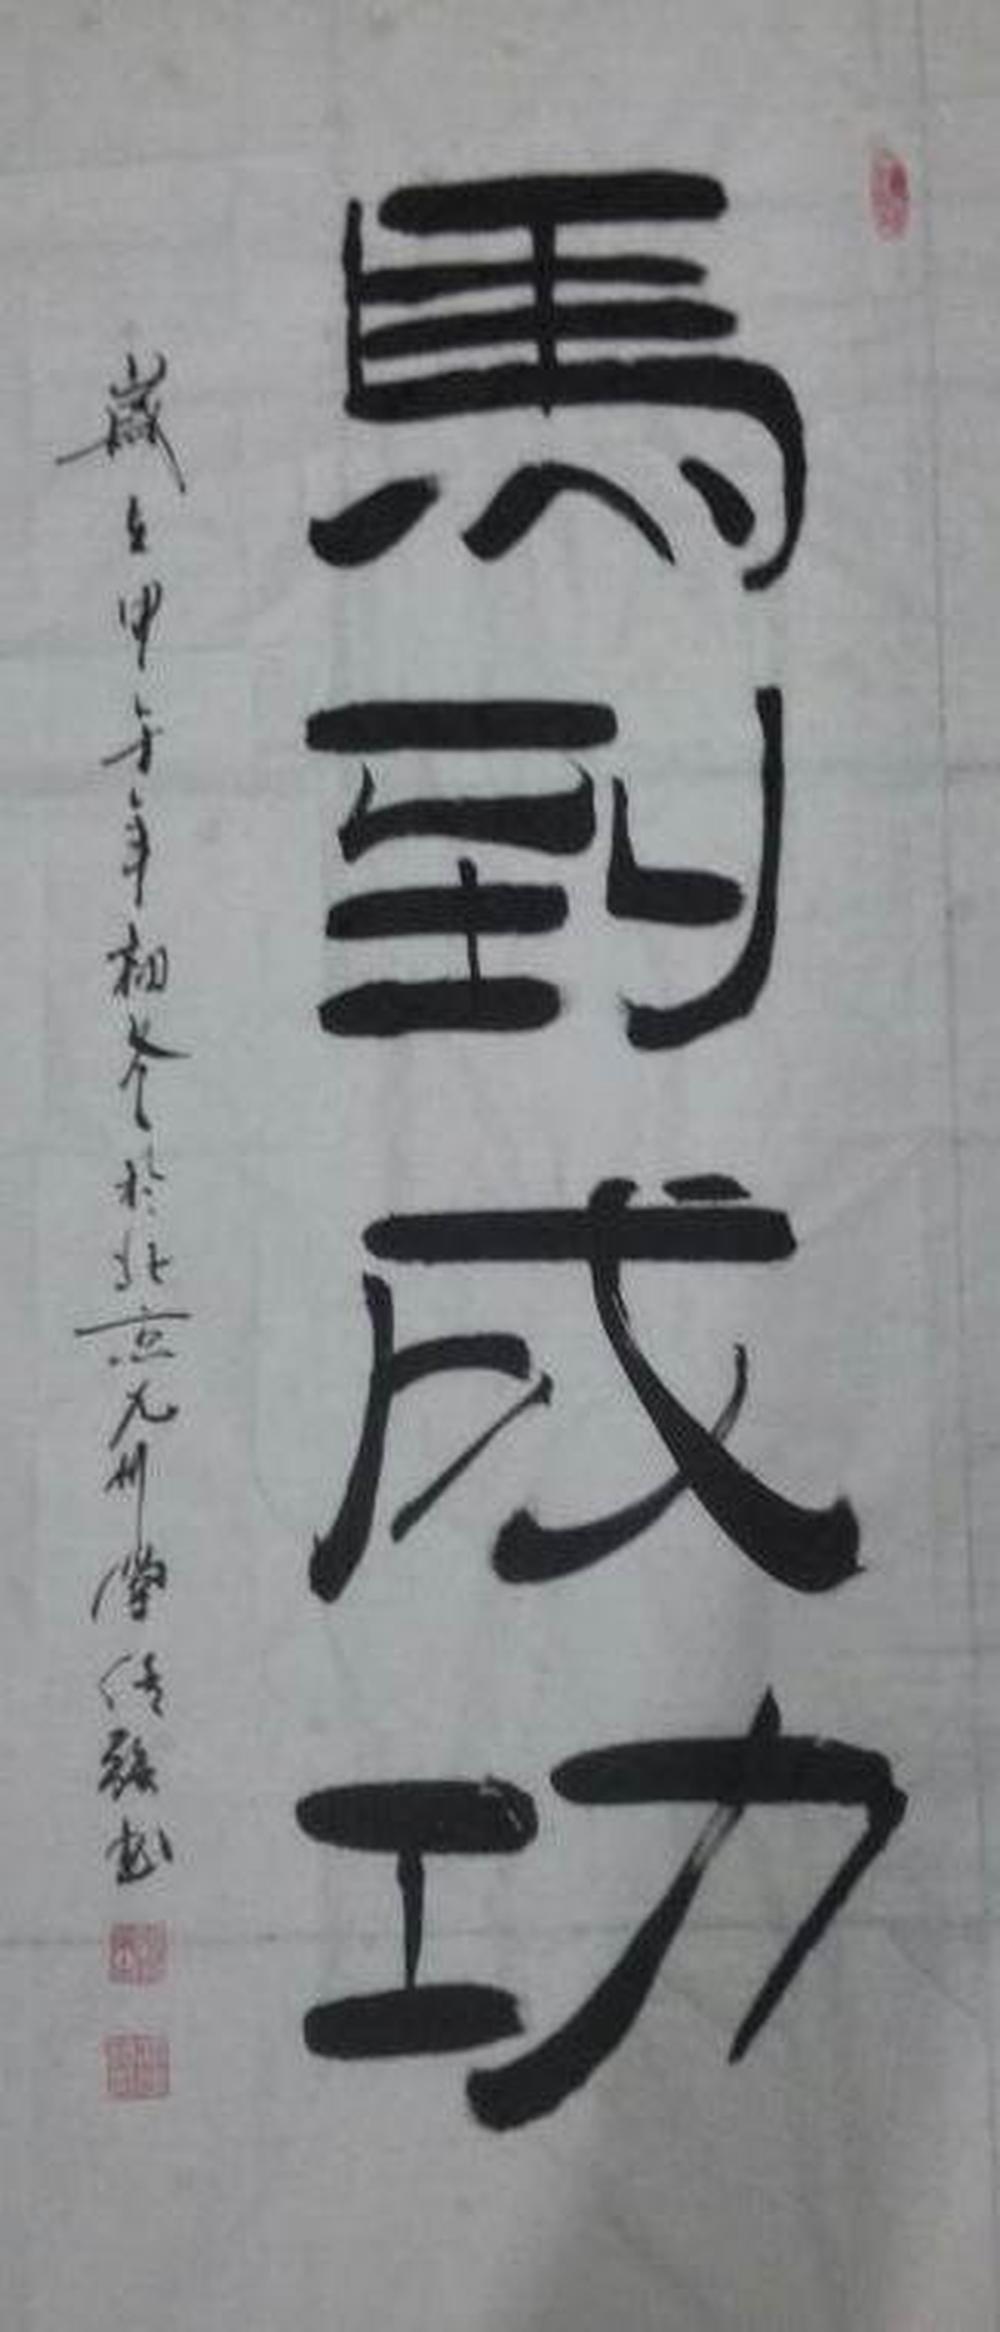 馬到成功
歲在甲午年初冬於北京九州